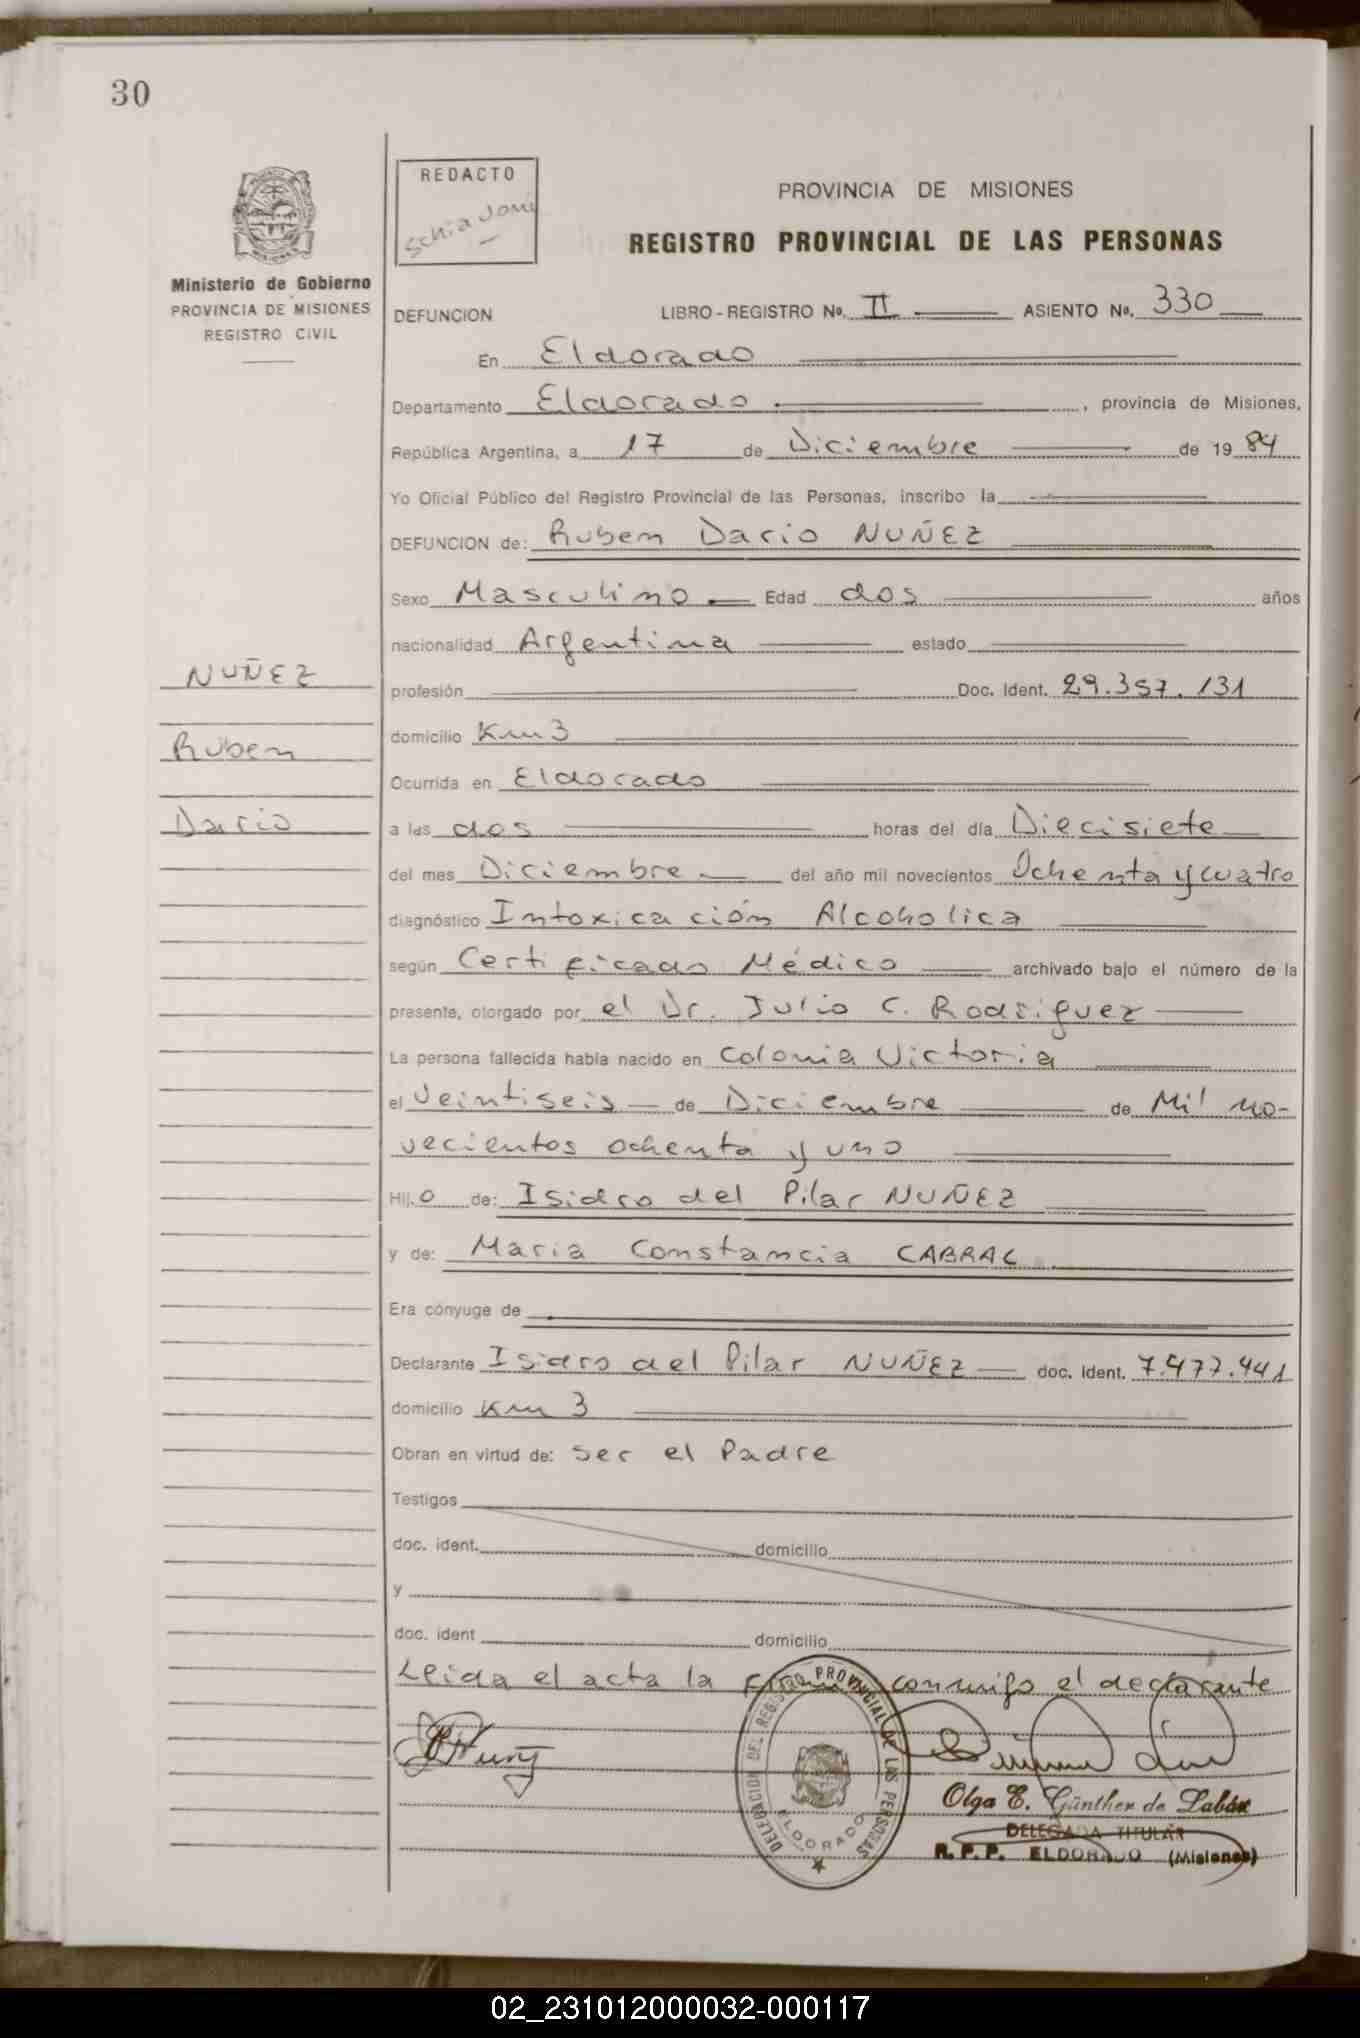 30
REDACTO
Schiavoni
Ministerio de Gobierno
PROVINCIA DE MISIONES
REGISTRO CIVIL
PROVINCIA DE MISIONES
REGISTRO PROVINCIAL DE LAS PERSONAS
DEFUNCION LIBRO-REGISTRO No. II ASIENTO No. 330
En Eldorado
Departamento Eldorado, provincia de Misiones,
República Argentina, a 17 de Diciembre de 1984
Yo Oficial Público del Registro Provincial de las Personas, inscribo la
DEFUNCION de: Ruben Dario NUÑEZ
Sexo Masculino Edad dos años
nacionalidad Argentina estado
NUÑEZ
profesión Doc. Ident. 29.357.131
Ruben
domicilio Km 3
Ocurrida en Eldorado
Dario
a las dos horas del día Diecisiete
del mes Diciembre del año mil novecientos Ochenta y cuatro
diagnóstico Intoxicación Alcoholica
según Certificado Médico archivado bajo el número de la
presente, otorgado por el Dr. Julio C. Rodriguez
La persona fallecida había nacido en Colonia Victoria
el Veintiseis de Diciembre de Mil no-
vecientos ochenta y uno
Hijo de: Isidro del Pilar NUÑEZ
y de: Maria Constancia CABRAL
Era cónyuge de
Declarante Isidro del Pilar NUÑEZ doc. ident. 7.477.441
domicilio Km 3
Obran en virtud de: ser el Padre
Testigos
doc. ident. domicilio
y
doc. ident domicilio
Leida el acta la firma conmigo el declarante
DELEGACION DEL REGISTRO PROVINCIAL DE LAS PERSONAS
ELDORADO
Olga E. Günther de Labán
DELEGADA TITULAR
R.P.P. ELDORADO (Misiones)
02_231012000032-000117